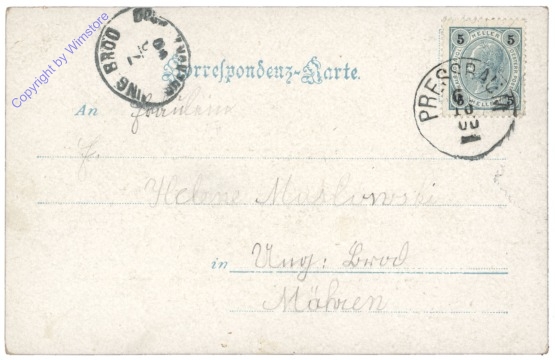 Copyright by Wimstore
UNG. BROD
Correspondenz-Karte.
5 HELLER 5
PRESSBAUM
6
16
00
An Fräulein
Helene
in Ung: Brod
Mähren